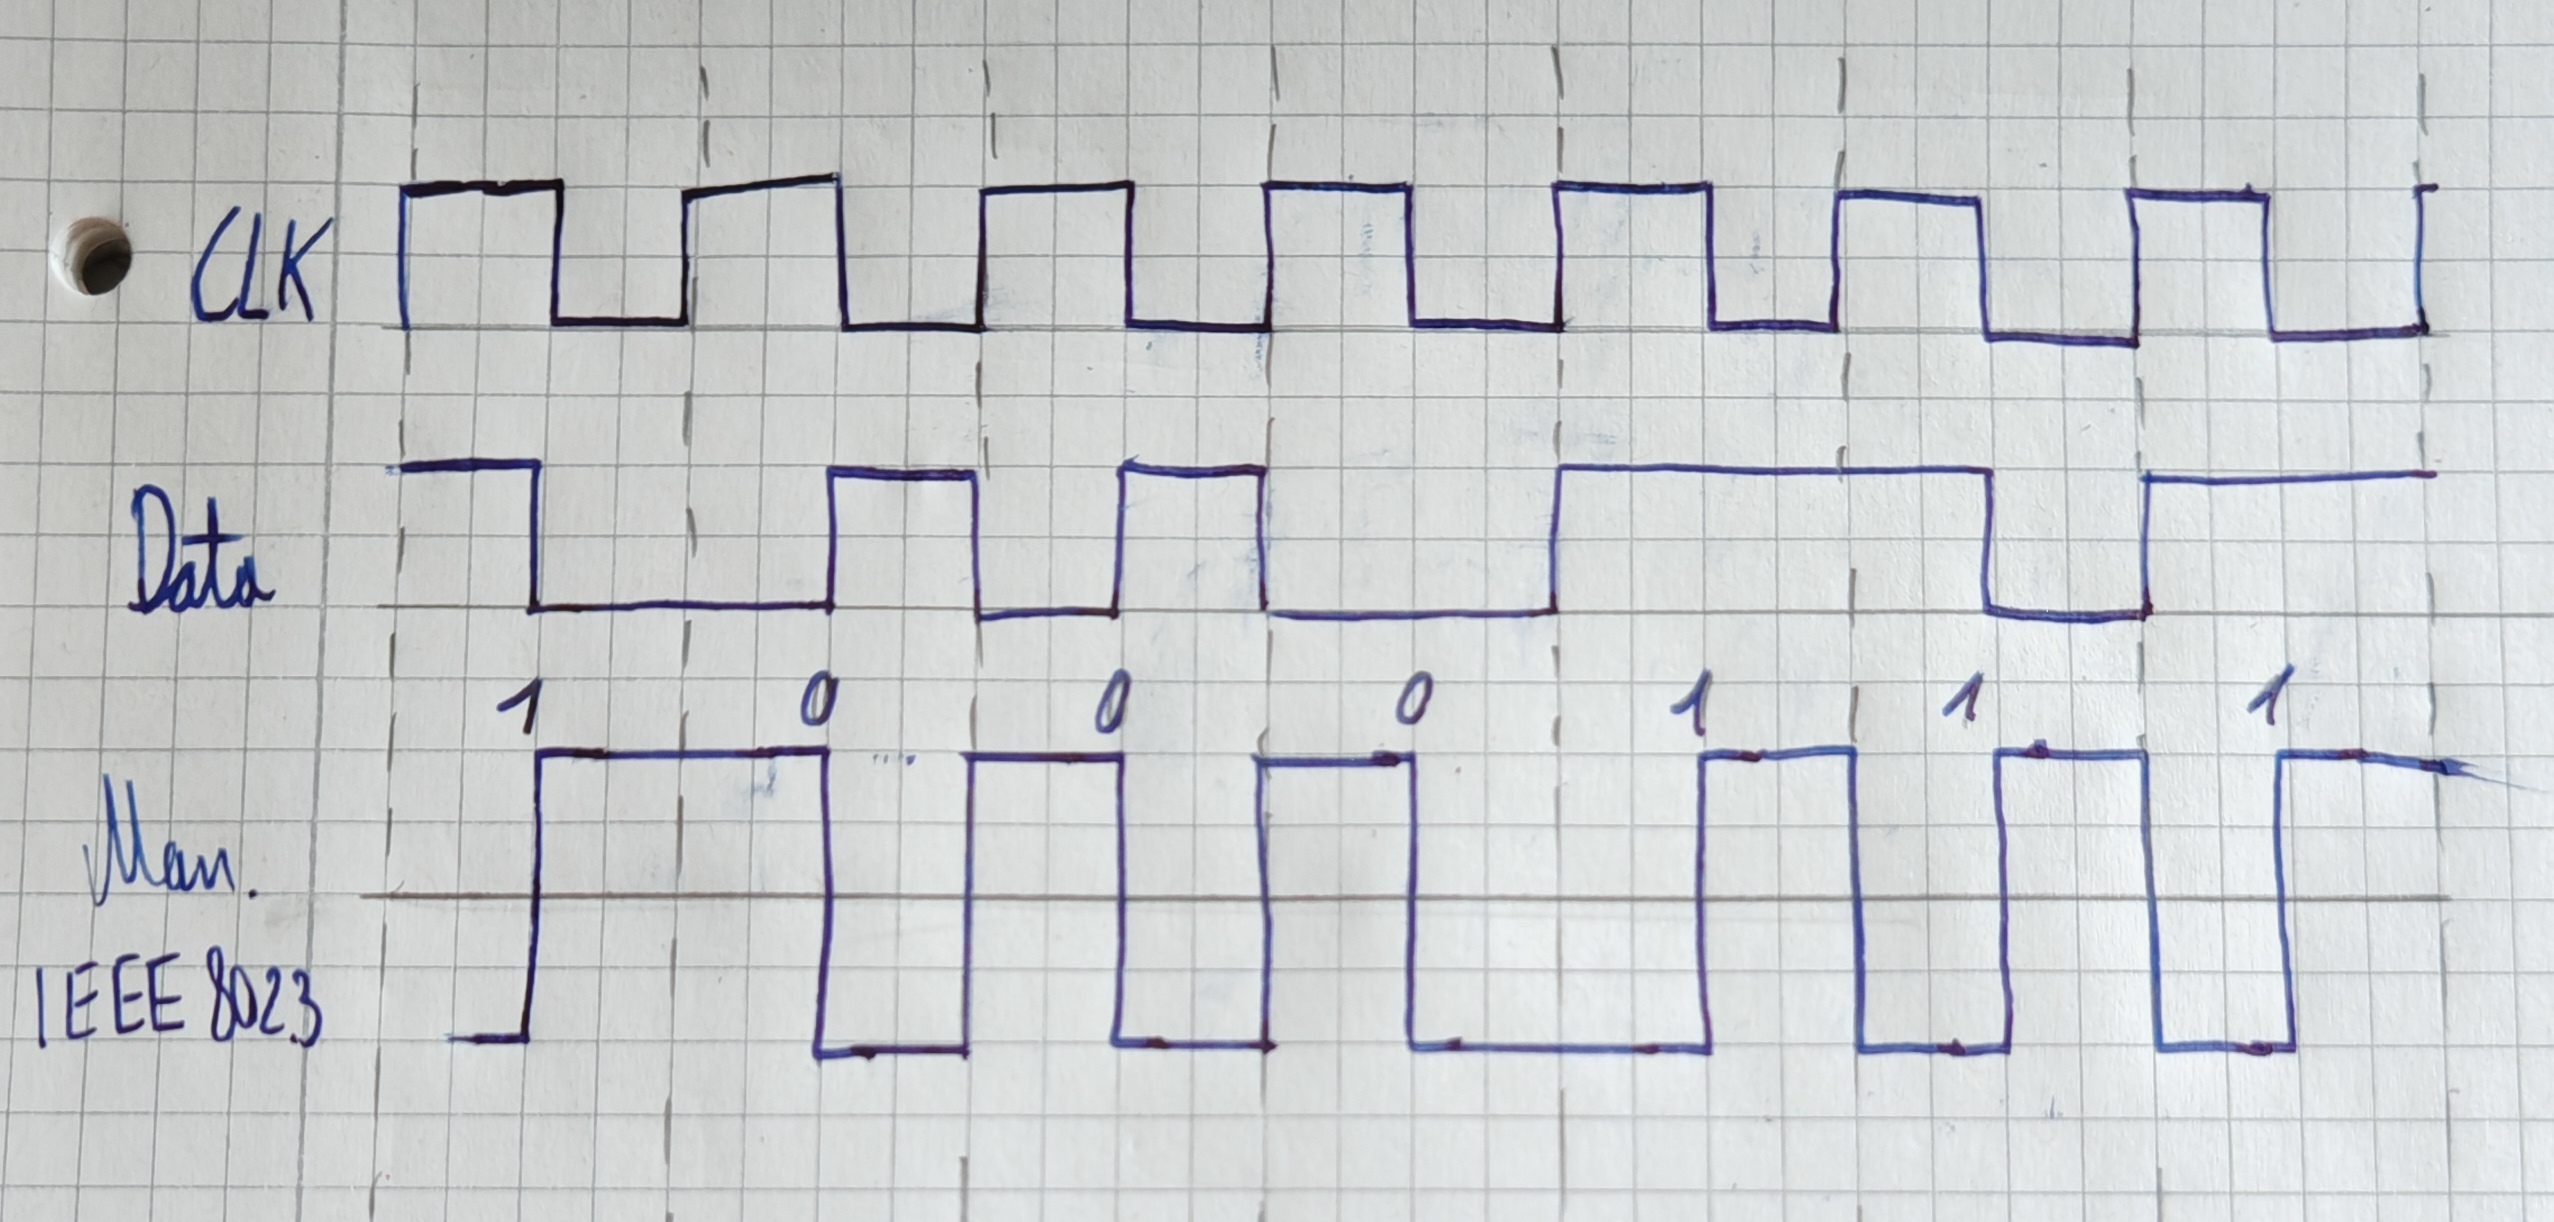 CLK
Data
1 0 0 0 1 1 1
Man.
IEEE 802.3